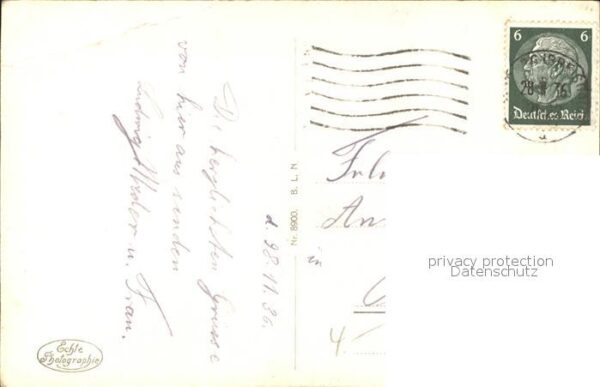 Die herzlichsten Grüsse
von hier aus senden
Ludwig u. Frau.
d. 28.11.36.
Echte
Photographie
Nr. 8900. B. L. N
6 6
Deutsches Reich
28
36
Frl
An
in
4.-
privacy protection
Datenschutz